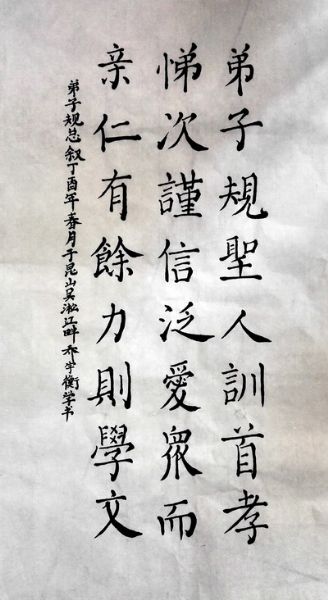 弟子規聖人訓首孝
悌次謹信泛愛眾而
亲仁有餘力則學文
弟子规总叙丁酉年春月于昆山吴淞江畔衡学书